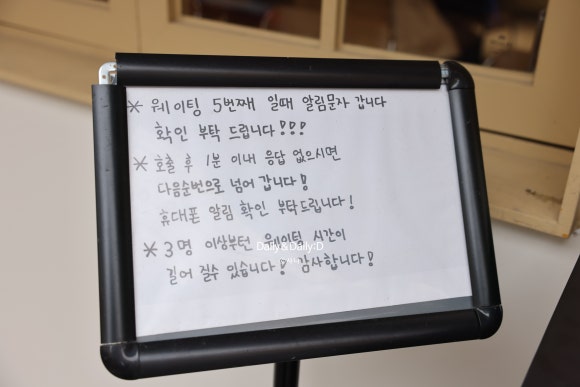 * 웨이팅 5번째 일때 알림문자 갑니다
확인 부탁 드립니다!!!
* 호출 후 1분 이내 응답 없으시면
다음순번으로 넘어 갑니다!
휴대폰 알림 확인 부탁드립니다!
* 3명 이상부턴 웨이팅 시간이
Daily&Daily:D
길어 질수 있습니다! 감사합니다!